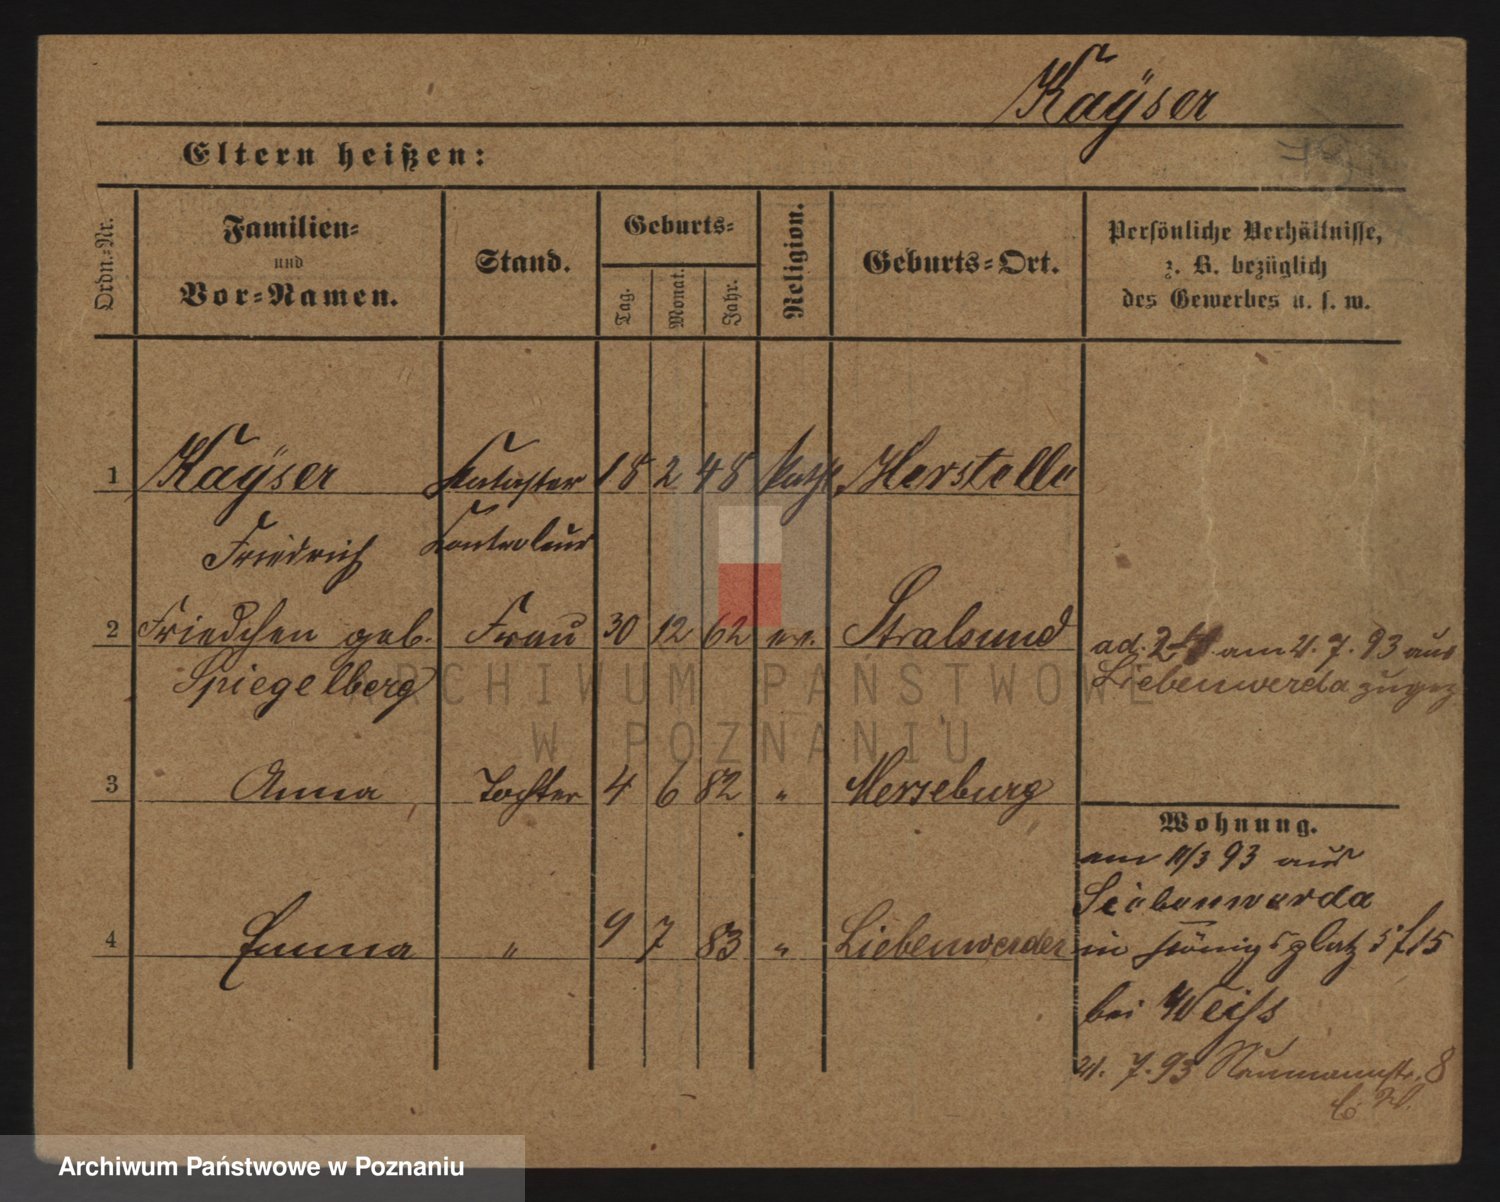 Kaÿser
Eltern heißen:
Ordn.=Nr.
Familien=
und
Vor=Namen.
Stand.
Geburts=
Tag.
Monat.
Jahr.
Religion.
Geburts=Ort.
Persönliche Verhältnisse,
z. B. bezüglich
des Gewerbes u. s. w.
1 Kaÿser Kataster 18 2 48 kath. Herstelle
Friedrich Kontroleur
2 Friedchen geb. Frau 30 12 62 ev. Stralsund
Spiegelberg
ad. 2-4 am 21. 7. 93 aus
Liebenwerda zugez.
3 Anna Tochter 4 6 82 " Merseburg
4 Emma " 9 7 83 " Liebenwerder
Wohnung.
am 11/3 93 aus
Liebenwerda
in Königsplatz 5 f 15
bei Weiss
21. 7. 93 Naumannstr. 8
ARCHIWUM PAŃSTWOWE
W POZNANIU
Archiwum Państwowe w Poznaniu